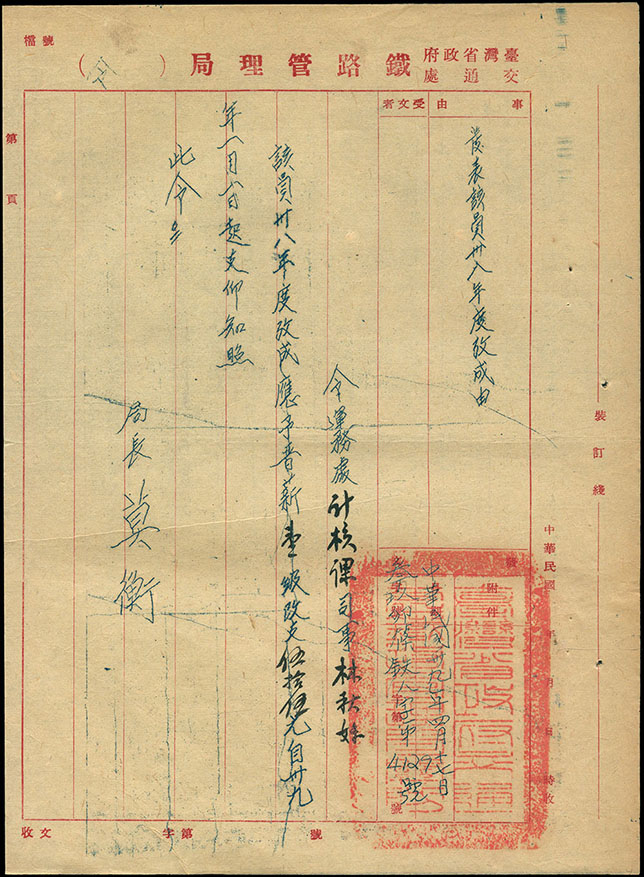 臺灣省政府
交通處
鐵路管理局
（令）
檔 號
第 頁
事由
受文者
發表該員卅八年度攷成由
附件
中華民國卅九年四月十七日
鐵人字第4129號
令運務處計核課司事林秋妹
該員卅八年度攷成應予晋薪壹級改支伍拾伍元自卅九
年一月一日起支仰知照
此令
局長 莫衡
裝訂綫
中華民國 年 月 日 時收
收文 字第 號